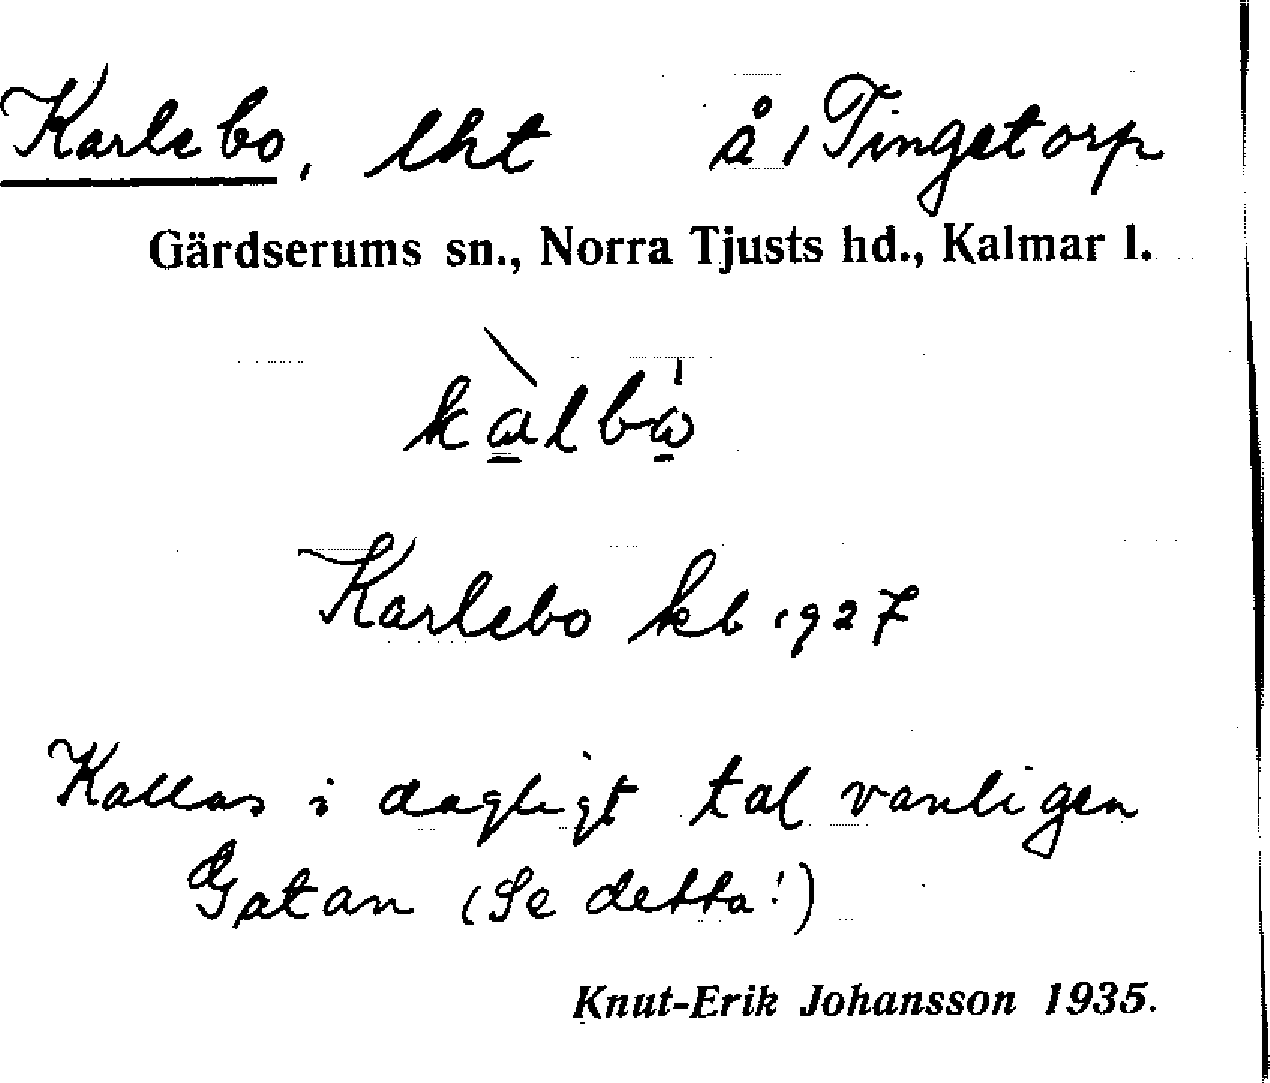 Karlebo, lht å 1 Tingetorp
Gärdserums sn., Norra Tjusts hd., Kalmar l.
Karlebo kb 1927
Kallas i dagligt tal vanligen
Gatan (Se detta!)
Knut-Erik Johansson 1935.